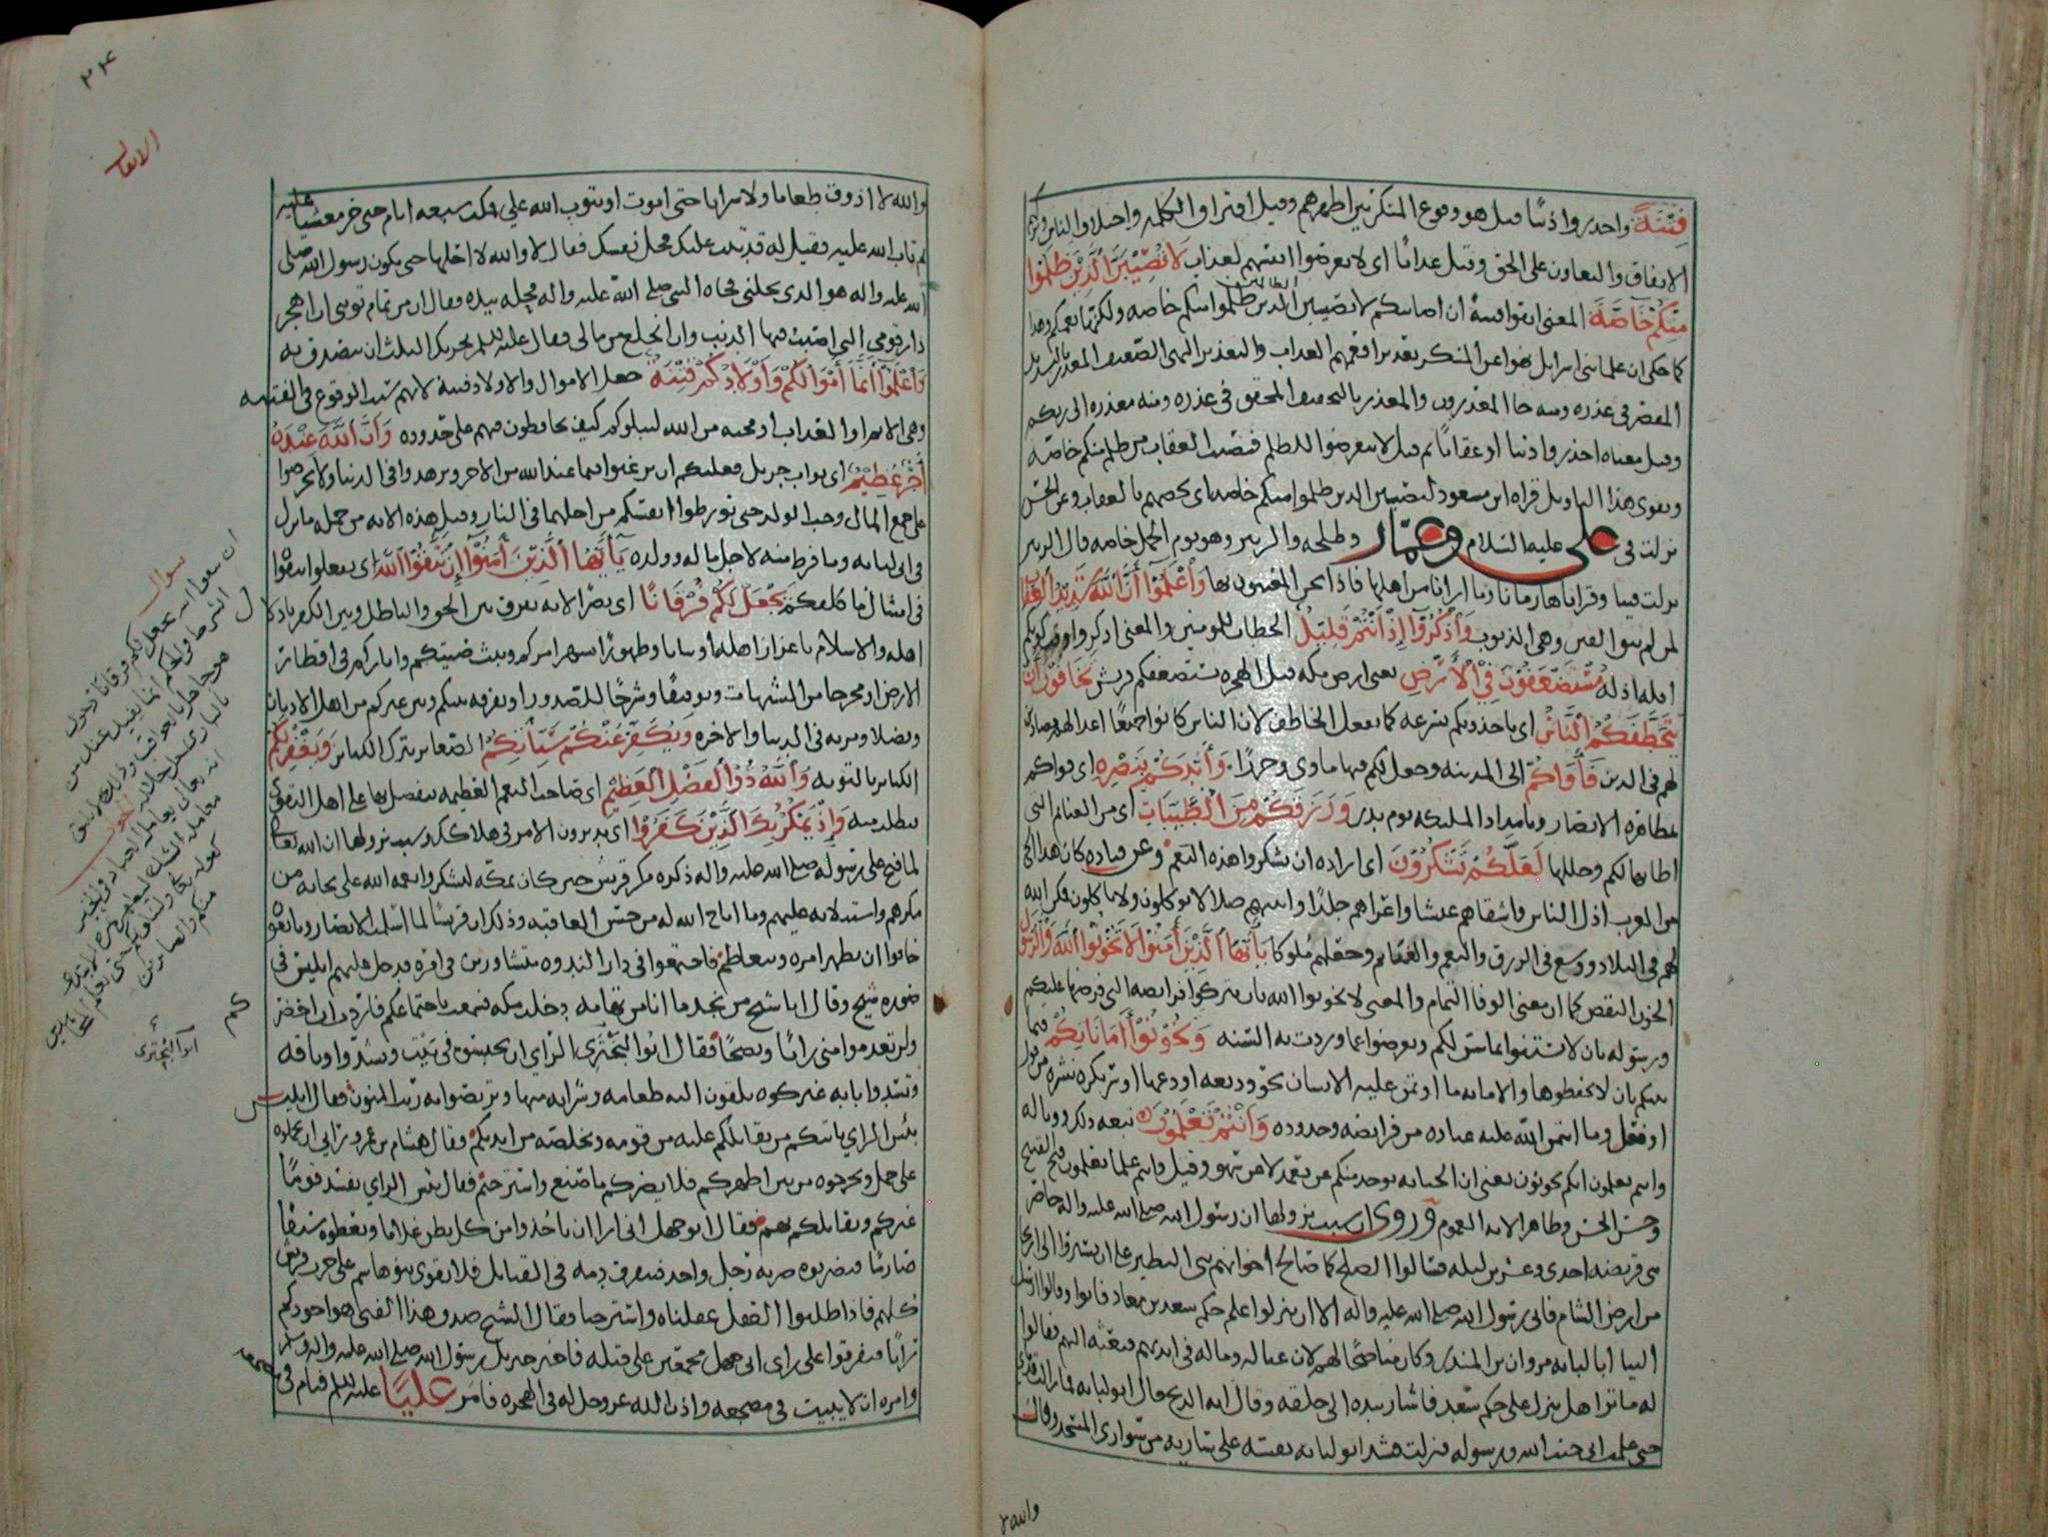 فتنة واحذروا ذنبا قيل هو وقوع المنكر بين اظهرهم وقيل افتراق الكلمة واختلاف الناس
الاتفاق والتعاون على الحق وقيل عذابا اى لا تعرضوا انفسهم لعذاب لا تصيبن الذين ظلموا
منكم خاصة المعنى اتقوا فتنة ان اصابتكم لا تصيبن الذين ظلموا منكم خاصة ولكنها تعمكم وهذا
كما حكى ان علما بنى اسرايل نهوا عن المنكر تعذيرا فعمهم العذاب والتعذير النهى الضعيف المعذر بالتشديد
المقصر فى عذره ومنه جا المعذرون والمعذر بالتخفيف المحقق فى عذره ومنه معذرة الى ربكم
وقيل معناه احذروا ذنبا او عقابا ثم قيل لا تتعرضوا للظلم فتصيب العقاب من ظلم منكم خاصة
ويقوى هذا التاويل قراة ابن مسعود لتصيبن الذين ظلموا منكم خاصة اى يخصهم بالعقاب وعن الحسن
نزلت فى على عليه السلام وعمار وطلحة والزبير وهو يوم الجمل خاصة قال الزبير
نزلت فينا وقراناها زمانا وما ارانا من اهلها فاذا نحن المعنيون بها واعلموا ان الله شديد العقاب
لمن لم يتق الفتن وهى الذنوب واذكروا اذ انتم قليل الخطاب للمومنين والمعنى اذكروا وقت كونكم
اقلة اذلة مستضعفون فى الارض يعنى ارض مكة قبل الهجرة تستضعفكم قريش تخافون ان
يتخطفكم الناس اى ياخذونكم بسرعة كما يفعل الخاطف لان الناس كانوا جميعا اعدا لهم
لهم فى الدين فآواكم الى المدينة وجعل لكم فيها ماوى وحرزا وايدكم بنصره اى قواكم
بمظاهرة الانصار وبامداد المليكة يوم بدر ورزقكم من الطيبات اى من الغنائم التى
اطابها لكم وحللها لعلكم تشكرون اى ارادة ان تشكروا هذه النعم وعن قتادة كان هذا الحى
من العرب اذل الناس واشقاهم عيشا واعراهم جلدا وابينهم ضلالا يوكلون ولا ياكلون فمكن الله
لهم فى البلاد ووسع فى الرزق والنعم والغنايم وجعلهم ملوكا يا ايها الذين آمنوا لا تخونوا الله والرسول
الخون النقص كما ان معنى الوفا التمام والمعنى لا تخونوا الله بان تتركوا فرايضه التى فرضها عليكم
ورسوله بان لا تستنوا بما سن لكم وتعرضوا عما وردت به السنة وتخونوا اماناتكم فيما
بينكم بان لا تحفظوها والامانة ما اوتمن عليه الانسان نحو وديعة اودعها او سر يكره نشره من قول
او فعل وما ائتمن الله عليه عباده من فرايضه وحدوده وانتم تعلمون تبعة ذلك ووباله
وانتم تعلمون انكم تخونون يعنى ان الخيانة توجد منكم عن تعمد لا عن سهو وقيل وانتم علما تعلمون قبح القبيح
وحسن الحسن وظاهر الاية العموم وروى ان سبب نزولها ان رسول الله صلى الله عليه واله حاصر
بنى قريظة احدى وعشرين ليلة فسالوا الصلح كما صالح اخوانهم بنى النضير على ان يسيروا الى
من ارض الشام فابى رسول الله صلى الله عليه واله الا ان ينزلوا على حكم سعد بن معاذ فابوا وقالوا ارسل
الينا ابا لبابة مروان بن المنذر وكان مناصحا لهم لان عياله وماله فى ايديهم فبعثه اليهم فقالوا
له ما ترا هل ننزل على حكم سعد فاشار بيده الى حلقه وقال انه الذبح قال ابو لبابة فما زالت قدماى
حتى علمت انى خنت الله ورسوله فنزلت فشد ابو لبابة نفسه على سارية من سوارى المسجد وقال
والله لا
٢٤
الانفال
والله لا اذوق طعاما ولا شرابا حتى اموت او يتوب الله على فمكث سبعة ايام حتى خر مغشيا عليه
ثم تاب الله عليه فقيل له قد تيب عليك فحل نفسك فقال لا والله لا احلها حتى يكون رسول الله صلى
الله عليه واله هو الذى يحلنى فجاه النبى صلى الله عليه واله فحله بيده فقال ان من تمام توبتى ان اهجر
دار قومى التى اصبت فيها الذنب وان انخلع من مالى فقال عليه السلم يجزيك الثلث ان تصدق به
واعلموا انما اموالكم واولادكم فتنة جعل الاموال والاولاد فتنة لانهم سبب الوقوع فى الفتنة
وهى الاثم او العذاب او محنة من الله ليبلوكم كيف تحافظون فيهم على حدوده وان الله عنده
اجر عظيم اى ثواب جزيل فعليكم ان ترغبوا فيما عند الله من الاجر وتزهدوا فى الدنيا ولا تحرصوا
على جمع المال وحب الولد حتى تورطوا انفسكم من اجلهما فى النار وقيل هذه الاية من جملة ما نزل
فى ابى لبابة وما فرط منه لاجل ماله وولده يا ايها الذين آمنوا ان تتقوا الله اى تفعلوا تتقوا
فى امتثال ما كلفكم يجعل لكم فرقانا اى نصرا لانه يفرق بين الحق والباطل وبين الكفر باذلال
اهله والاسلام باعزاز اهله او بيانا وظهورا يشهر امركم ويبث صيتكم واثاركم فى اقطار
الارض او مخرجا من الشبهات وتوفيقا وشرحا للصدور او تفرقة بينكم وبين غيركم من اهل الاديان
وفضلا ومزية فى الدنيا والاخرة ويكفر عنكم سيآتكم الصغاير بترك الكباير ويغفر لكم
الكباير بالتوبة والله ذو الفضل العظيم اى صاحب النعم العظيمة يتفضل بها على اهل التقوى
بطلب منه واذ يمكر بك الذين كفروا اى يدبرون الامر فى هلاكك وسبب نزولها ان الله تعالى
لما فتح على رسوله صلى الله عليه واله ذكره مكر قريش حين كان بمكة ليشكر نعمة الله على نجاته من
مكرهم واستيلائه عليهم وما اتاح الله له من حسن العاقبة وذلك ان قريشا لما اسلمت الانصار وبايعوه
خافوا ان يظهر امره ويتعاظم فاجتمعوا فى دار الندوة متشاورين فى امره فدخل عليهم ابليس فى
صورة شيخ وقال انا شيخ من نجد ما انا من تهامة دخلت مكة فسمعت باجتماعكم فاردت ان احضركم
ولن تعدموا منى رايا ونصحا فقال ابو البخترى الراى ان تحبسوه فى بيت وتشدوا وثاقه
وتسدوا بابه غير كوة تلقون اليه طعامه وشرابه منها وتربصوا به ريب المنون فقال ابليس
بئس الراى ياتيكم من يقاتلكم عليه من قومه ويخلصه من ايديكم وقال هشام بن عمرو رايى ان تحملوه
على جمل وتخرجوه من بين اظهركم فلا يضركم ما صنع واسترحتم فقال بئس الراى يفسد قوما
غيركم ويقاتلكم بهم فقال ابو جهل انى ارا ان تاخذوا من كل بطن غلاما وتعطوه سيفا
صارما فيضربوه ضربة رجل واحد فيفرق دمه فى القبايل فلا يقوى بنو هاشم على حرب قريش
كلهم فاذا طلبوا العقل عقلناه واسترحنا فقال الشيخ صدق هذا الفتى هو اجودكم
رايا فتفرقوا على راى ابى جهل مجمعين على قتله فاخبر جبريل رسول الله صلى الله عليه واله وسلم
وامره ان لا يبيت فى مضجعه واذن الله عز وجل له فى الهجرة فامر عليا عليه السلم فنام فى
مضجعه
سوال
ابو البخترى